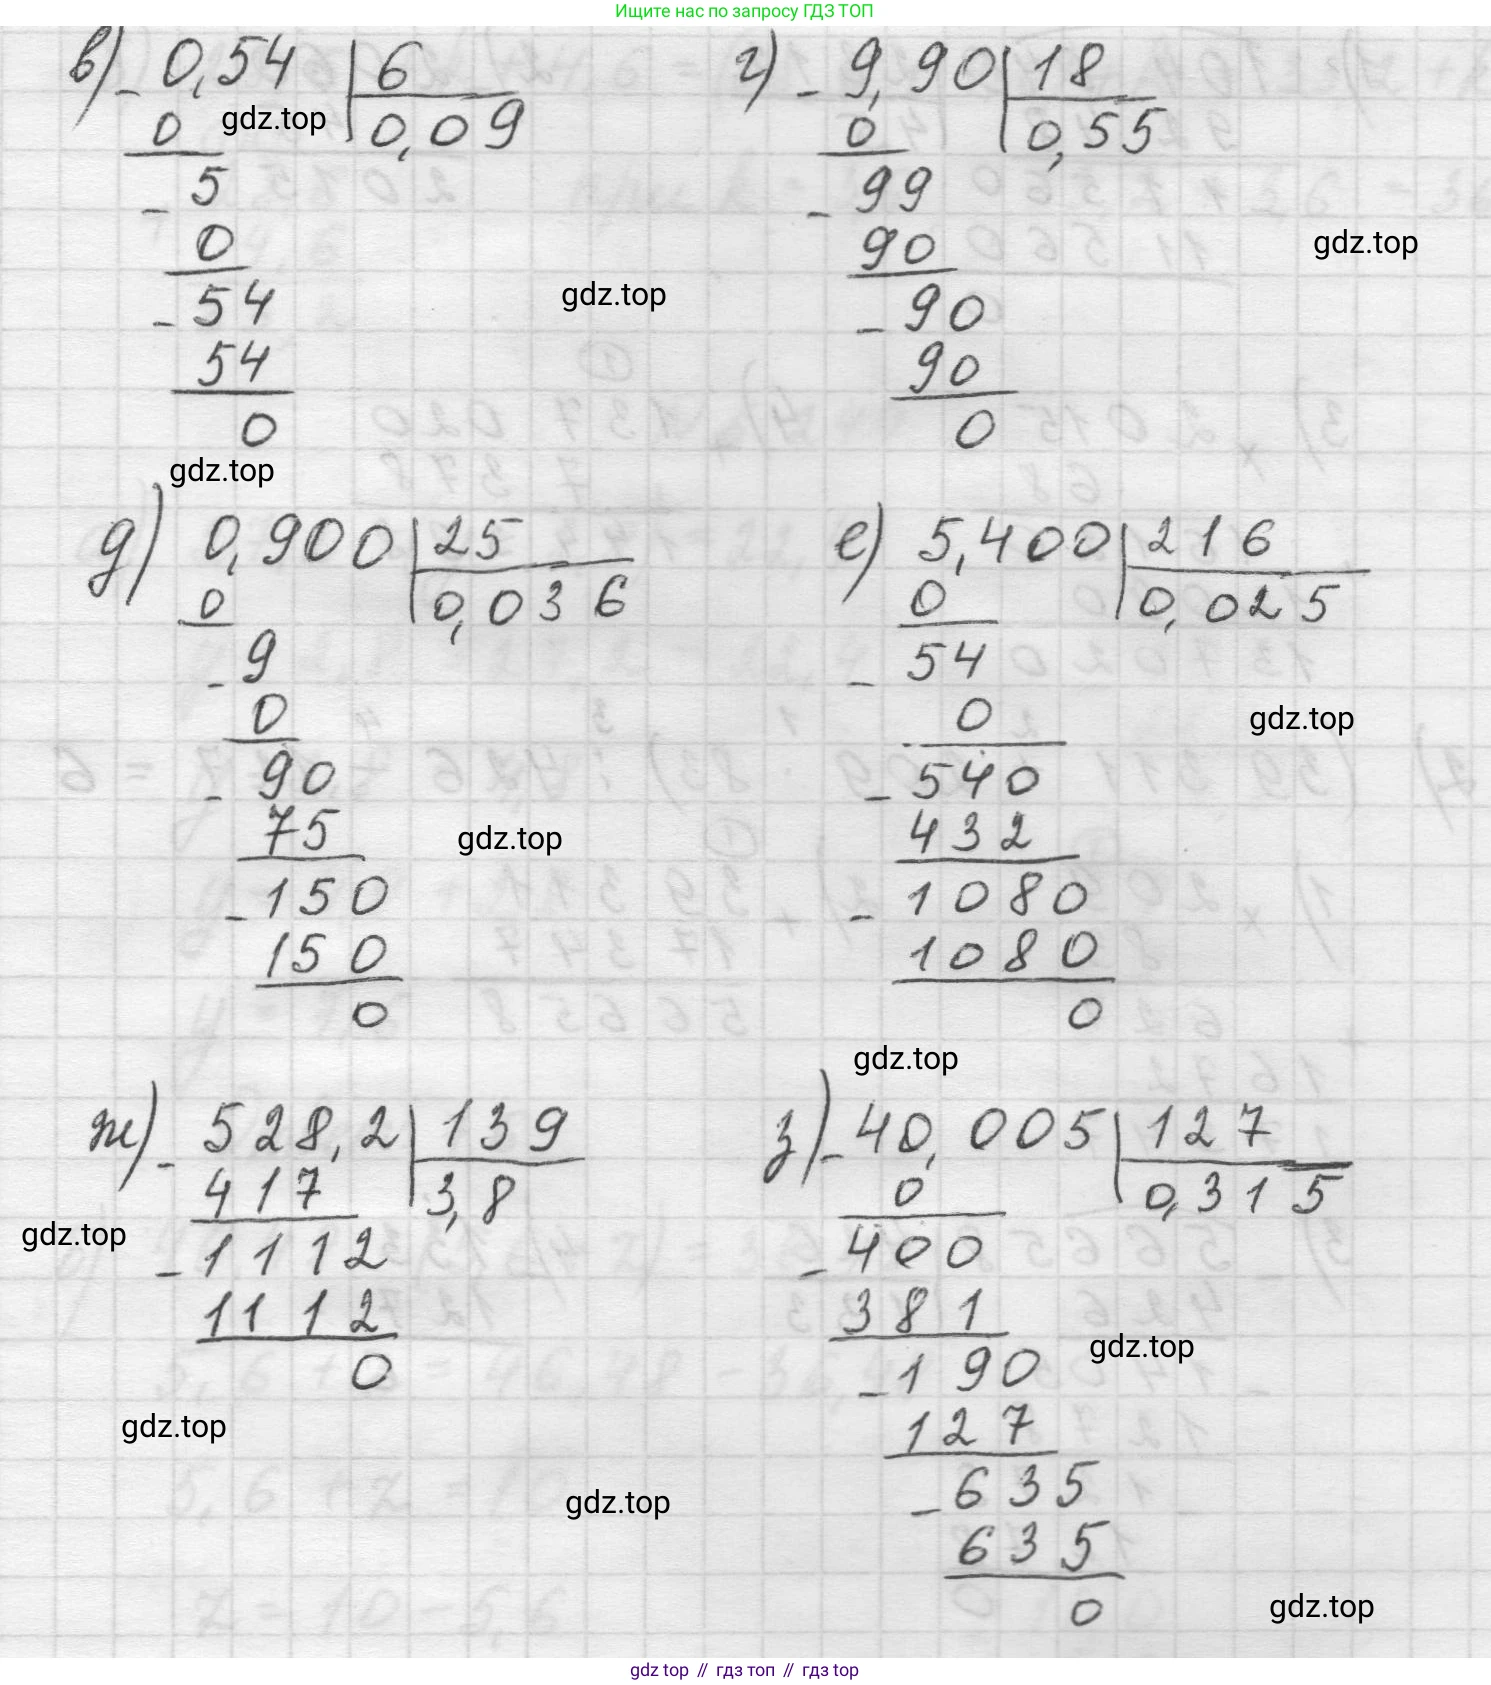 Ищите нас по запросу ГДЗ ТОП
в) - 0,54 | 6
0 gdz.top 0,09
- 5
0
- 54
54
0
г) - 9,90 | 18
0 0,55
- 99
90
- 90
90
0
gdz.top
gdz.top
gdz.top
д) 0,900 | 25
0 0,036
- 9
0
- 90
75
- 150
150
0
gdz.top
е) 5,400 | 216
0 0,025
- 54
0
- 540
432
- 1080
1080
0
gdz.top
gdz.top
ж) - 528,2 | 139
417 3,8
- 1112
1112
0
gdz.top
gdz.top
з) - 40,005 | 127
0 0,315
- 400
381
- 190
127
- 635
635
0
gdz.top
gdz.top
gdz.top
gdz top // гдз топ // гдз top